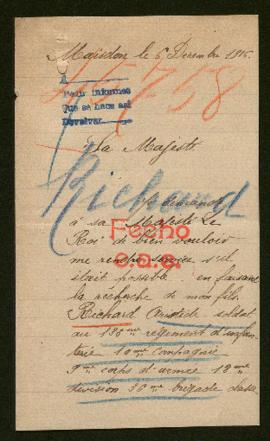 Maisdon le 6 Decembre 1915.
A
Pedir informes
Que se hace así
Devolver
45758
Sa Majesté
Richard
Je demande
à sa Majesté Le
Roi de bien vouloir
me rendre service s'il
était possible en faisant
la récherche de mon fils
Fecho
Richard soldat
au regiment d'infan
terie 10me Compagnie
9me corps d'armée 18me
division 30me brigade classe